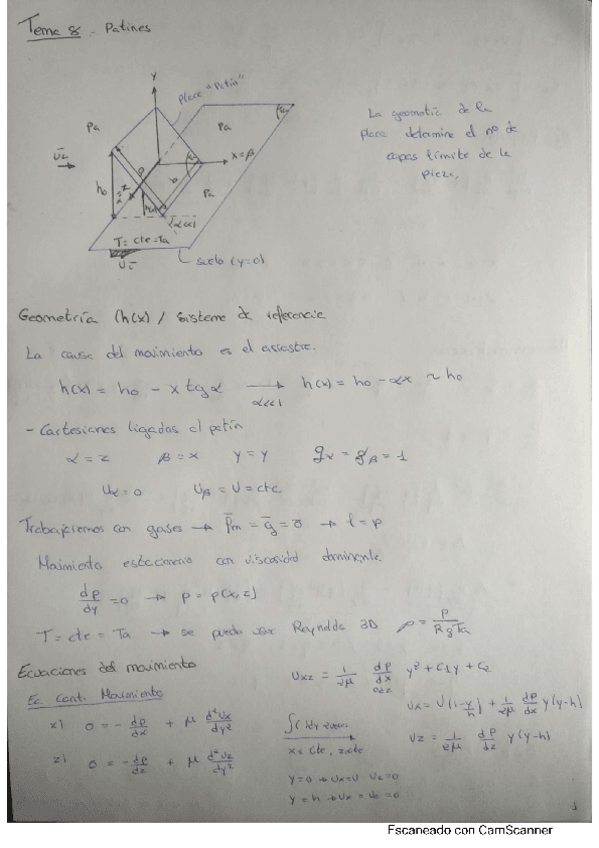 Tema 8 . Patines
Placa "Patin"
Y
Pa
Pa
Pa
x=β
h0
T= cte=Ta
suelo (y=0)
La geometria de la
placa determina el nº de
capas límite de la
pieza.
Geometría (h(x)) / sistema de referencia
La causa del movimiento es el arrastre.
h(x) = h0 - x tg α → h(x) = h0 - αx ~ h0
α<<1
- Cartesianas ligadas al patín
α = z β = x y = y gα = gβ = 1
Uα = 0 Uβ = U = cte
Trabajaremos con gases → f̄m = ḡ = 0 → P = p
Movimiento estacionario con viscosidad dominante.
dp/dy = 0 → p = p(x,z)
T = cte = Ta → se puede usar Reynolds 3D ρ = P/RgTa
Ecuaciones del movimiento
Ec Cant. Movimiento
x) 0 = - dp/dx + μ d²Ux/dy²
z) 0 = - dp/dz + μ d²Uz/dy²
Uxz = 1/2μ dp/dx odz y² + C1y + C2
x = cte, z=cte
y=0 → Ux=U Uz=0
y=h → Ux = Uz = 0
Ux = U(1-y/h) + 1/2μ dp/dx y(y-h)
Uz = 1/2μ dp/dz y(y-h)
1
Escaneado con CamScanner